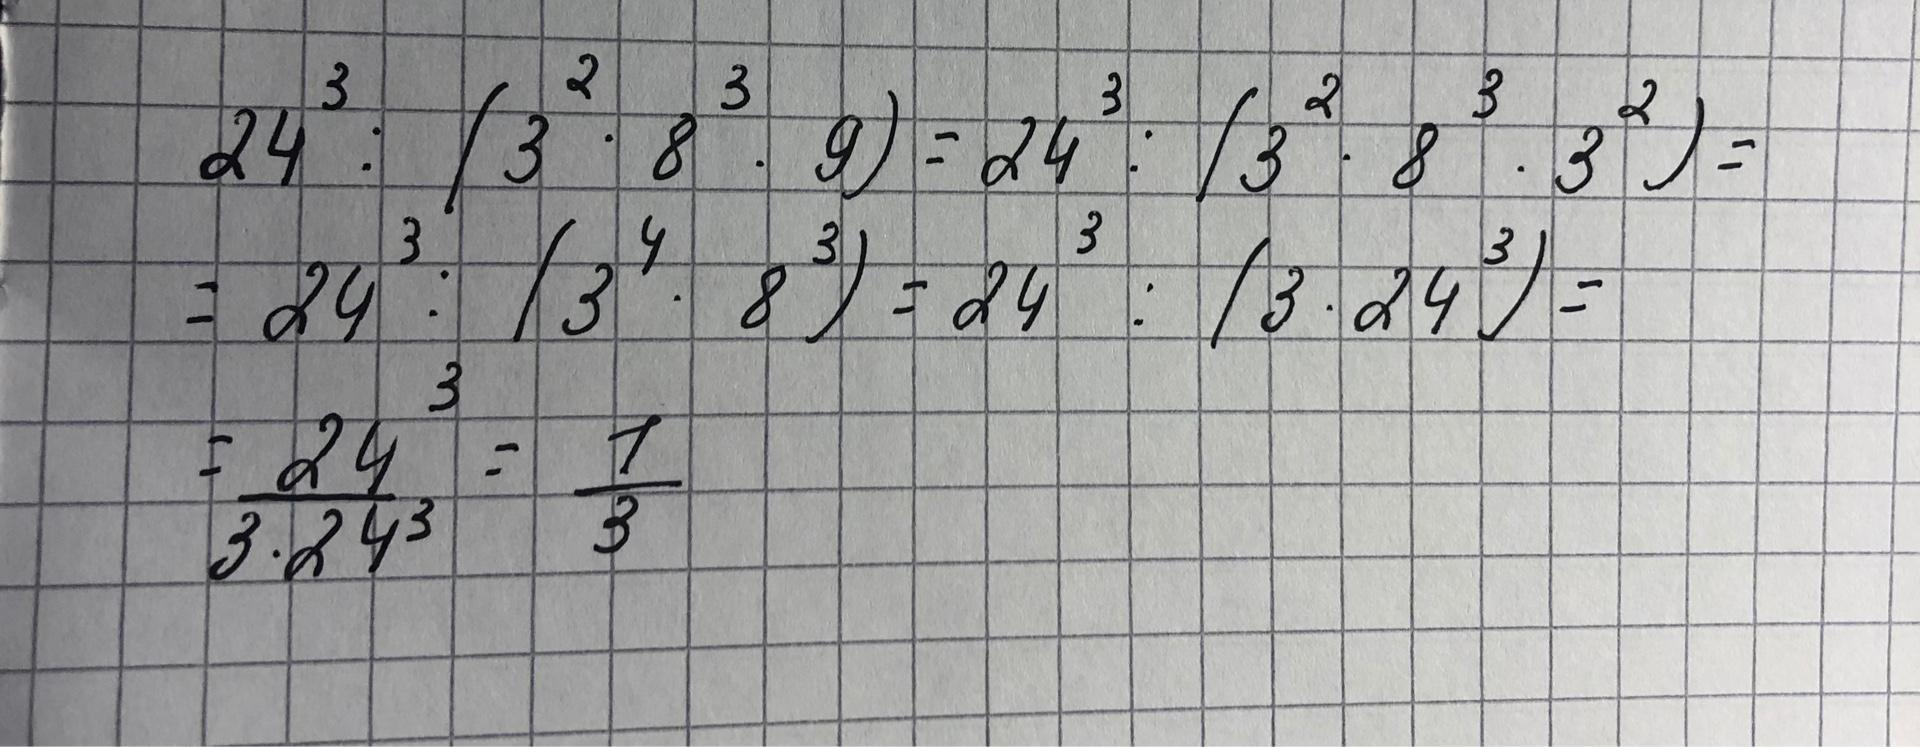 24³ : (3² · 8³ · 9) = 24³ : (3² · 8³ · 3²) =
= 24³ : (3⁴ · 8³) = 24³ : (3 · 24³) =
= 24³/(3 · 24³) = 1/3